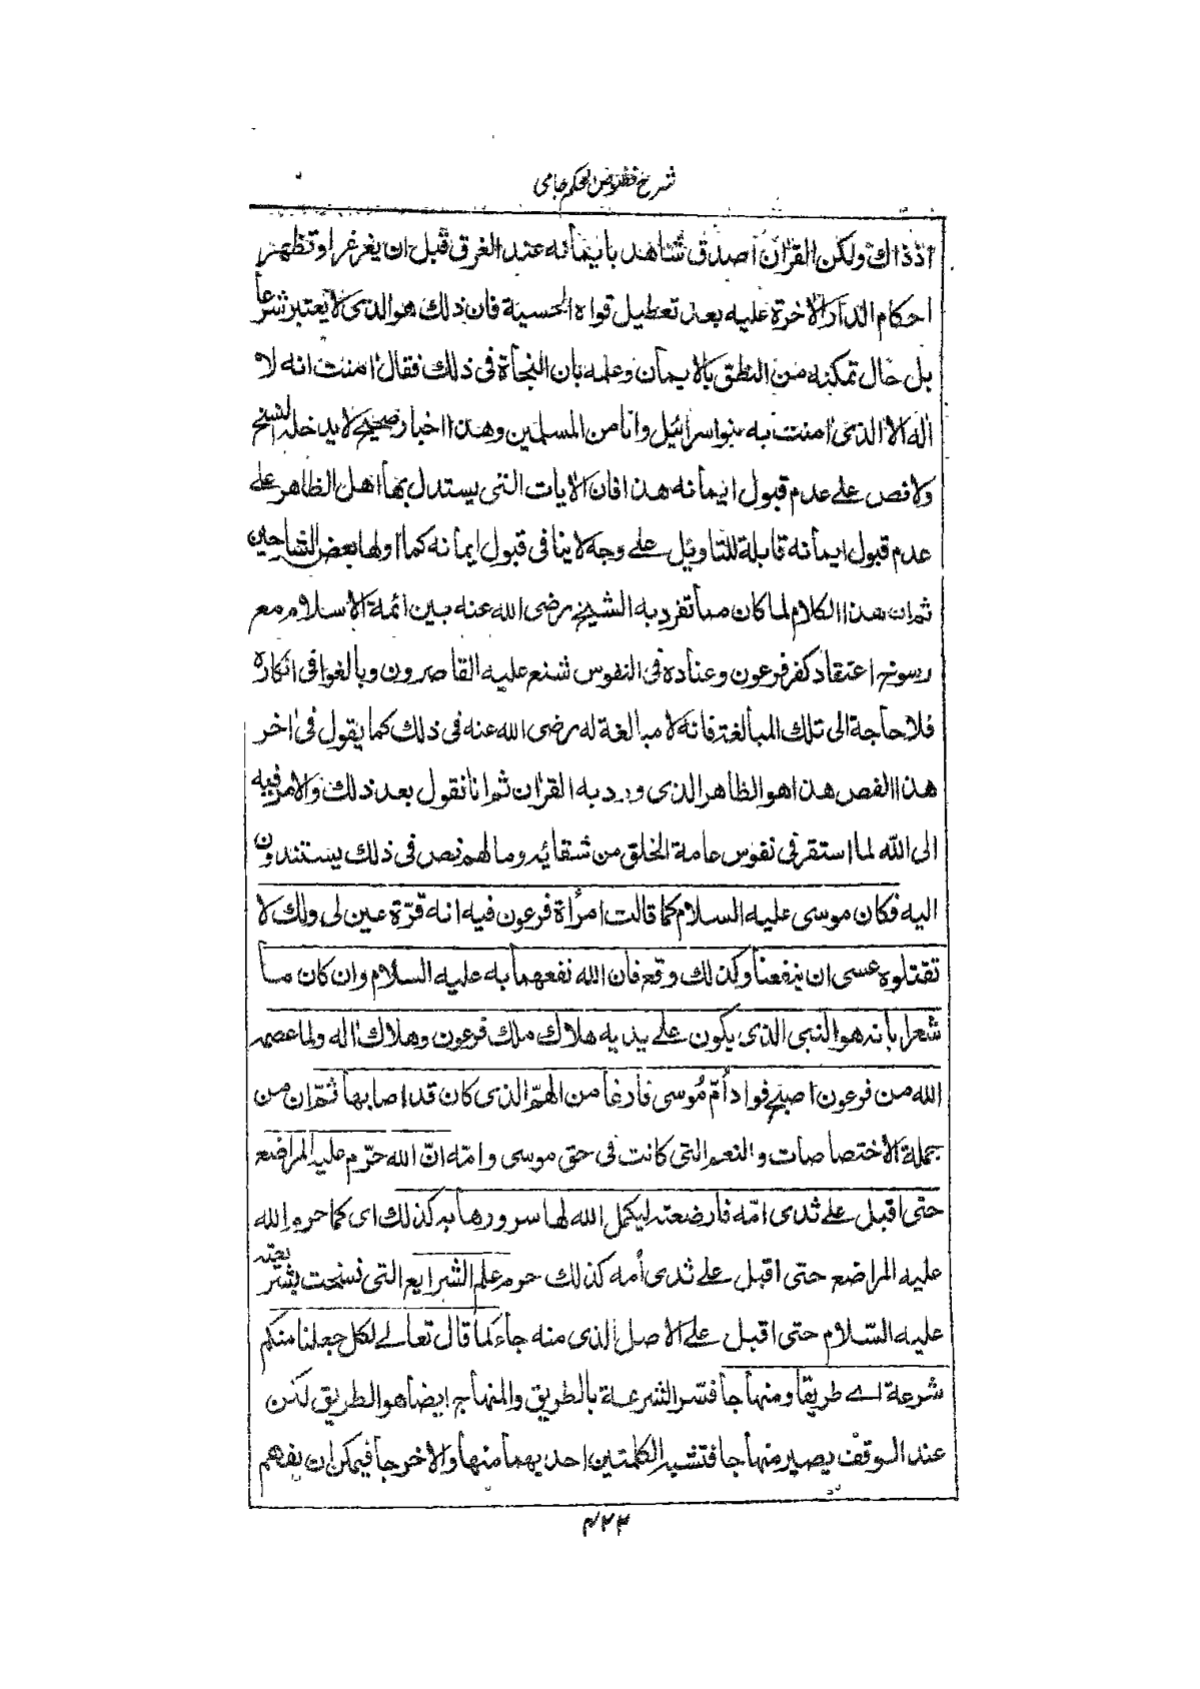 شرح فصوص الحكم جامى
اذ ذاك ولكن القران اصدق شاهد بايمانه عند الغرق قبل ان يغرغر او تظهر
احكام الدار الاخرة عليه بعد تعطيل قواه الحسية فان ذلك هو الذى لا يعتبر شرعا
بل حال تمكنه من النطق بالايمان وعلمه بان النجاة فى ذلك فقال امنت انه لا
اله الا الذى امنت به بنو اسرائيل وانا من المسلمين وهذا اخبار صحيح لا يدخله النسخ
ولا نص على عدم قبول ايمانه هذا فان الايات التى يستدل بها اهل الظاهر على
عدم قبول ايمانه قابلة للتاويل على وجه لا ينافى قبول ايمانه كما اولها بعض الشارحين
ثم ان هذا الكلام لما كان مما تفرد به الشيخ رضى الله عنه بين ائمة الاسلام مع
رسوخ اعتقاد كفر فرعون وعناده فى النفوس شنع عليه القاصرون وبالغوا فى انكاره
فلا حاجة الى تلك المبالغة فانه لا مبالغة له رضى الله عنه فى ذلك كما يقول فى اخر
هذا الفص هذا هو الظاهر الذى ورد به القران ثم انا نقول بعد ذلك والامر فيه
الى الله لما استقر فى نفوس عامة الخلق من شقائه وما لهم نص فى ذلك يستندون
اليه فكان موسى عليه السلام كما قالت امرأة فرعون فيه انه قرّة عين لى ولك لا
تقتلوه عسى ان ينفعنا وكذلك وقع فان الله نفعهما به عليه السلام وان كان ما
شعرا بانه هو النبى الذى يكون على يديه هلاك ملك فرعون وهلاك اله ولما عصمه
الله من فرعون اصبح فواد أمّ مُوسى فارغا من الهمّ الذى كان قد اصابها ثمّ ان من
جملة الاختصاصات والنعم التى كانت فى حق موسى وامّه انّ الله حرّم عليه المراضع
حتى اقبل على ثدى امّه فارضعته ليكمل الله لها سرورها به كذلك اى كما حرم الله
عليه المراضع حتى اقبل على ثدى أمه كذلك حرم علم الشرايع التى نسخت بشريعته
عليه السّلام حتى اقبل على الاصل الذى منه جاء كما قال تعالى لكل جعلنا منكم
شرعة اے طريقا ومنهاجا فسّر الشرعة بالطريق والمنهاج ايضا هو الطريق لكن
عند الوقف يصير منهاجا فتشير الكلمتين احديهما منها والاخر جا فيمكن ان يفهم
۴۲۳